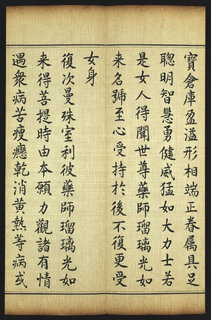 寶倉庫盈溢形相端正眷属具足
聰明智慧勇健威猛如大力士若
是女人得聞世尊藥師瑠璃光如
来名號至心受持於後不復更受
女身
復次曼殊室利彼藥師瑠璃光如
来得菩提時由本願力觀諸有情
遇衆病苦瘦㿏乾消黄熱等病或